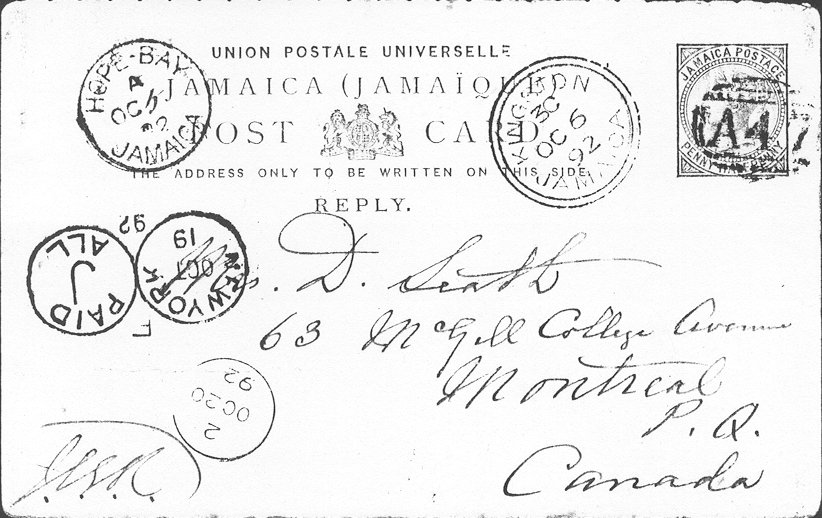 UNION POSTALE UNIVERSELLE
JAMAICA (JAMAÏQUE)
POST CARD
THE ADDRESS ONLY TO BE WRITTEN ON THIS SIDE.
REPLY.
JAMAICA POSTAGE
PENNY HALF PENNY
A47
HOPE-BAY
A
OC
92
JAMAICA
KINGSTON
OC 6
92
JAMAICA
PAID
J
ALL
NEW YORK
OCT
19
92
F
2
OC 20
92
D. Seath
63 McGill College Avenue
Montreal
P. Q.
Canada